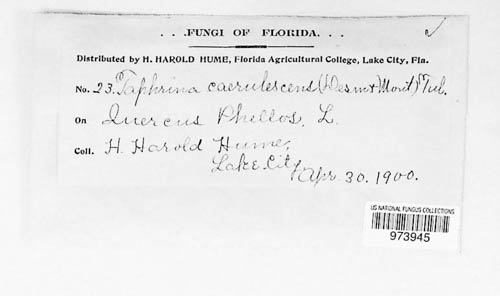 . . .FUNGI OF FLORIDA. . .
Distributed by H. HAROLD HUME, Florida Agricultural College, Lake City, Fla.
No. 23. Taphrina caerulescens (Desm & Mont) Tul.
On Quercus Phellos, L.
Coll. H. Harold Hume,
Lake City,
Apr. 30. 1900.
US NATIONAL FUNGUS COLLECTIONS
973945